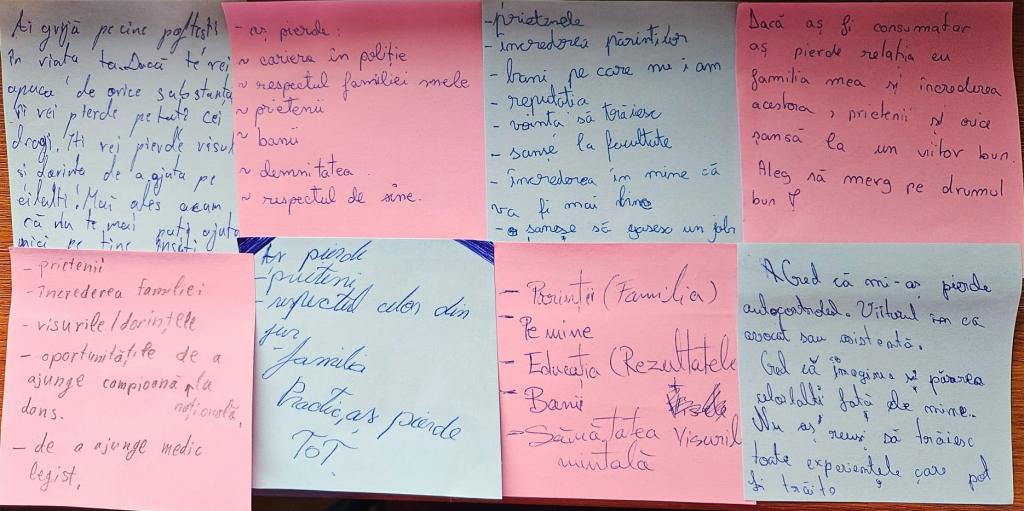 Ai grijă pe cine poftești
în viața ta. Dacă te vei
apuca de orice substanță
îi vei pierde pe toți cei
dragi, îți vei pierde visul
și dorința de a ajuta pe
ceilalți! Mai ales acum
că nu te mai poți ajuta
nici pe tine însuți
- aș pierde:
~ cariera în poliție
~ respectul familiei mele
~ prietenii
~ banii
~ demnitatea
~ respectul de sine.
- prietenele
- încrederea părinților
- bani pe care nu i am
- reputația
- voința să trăiesc
- șanse la facultate
- încrederea în mine că
va fi mai bine
- șansele să găsesc un job
Dacă aș fi consumator
aș pierde relația cu
familia mea și încrederea
acestora, prietenii și orice
șansă la un viitor bun.
Aleg să merg pe drumul
bun!
- prietenii
- încrederea familiei
- visurile/dorințele
- oportunitățile de a
ajunge campioană la
națională,
dans.
- de a ajunge medic
legist.
Ar pierde
- prieteni
- respectul celor din
jur
- familia
Practic, aș pierde
TOT.
- Părinții (Familia)
- Pe mine
- Educația (Rezultatele
- Banii
- Sănătatea Visuril
mintală
Cred că mi-aș pierde
autocontrolul. Viitorul im ca
avocat sau asistentă.
Cred că imaginea și părerea
celorlalți față de mine.
Nu aș reuși să trăiesc
toate experiențele care pot
fi trăite